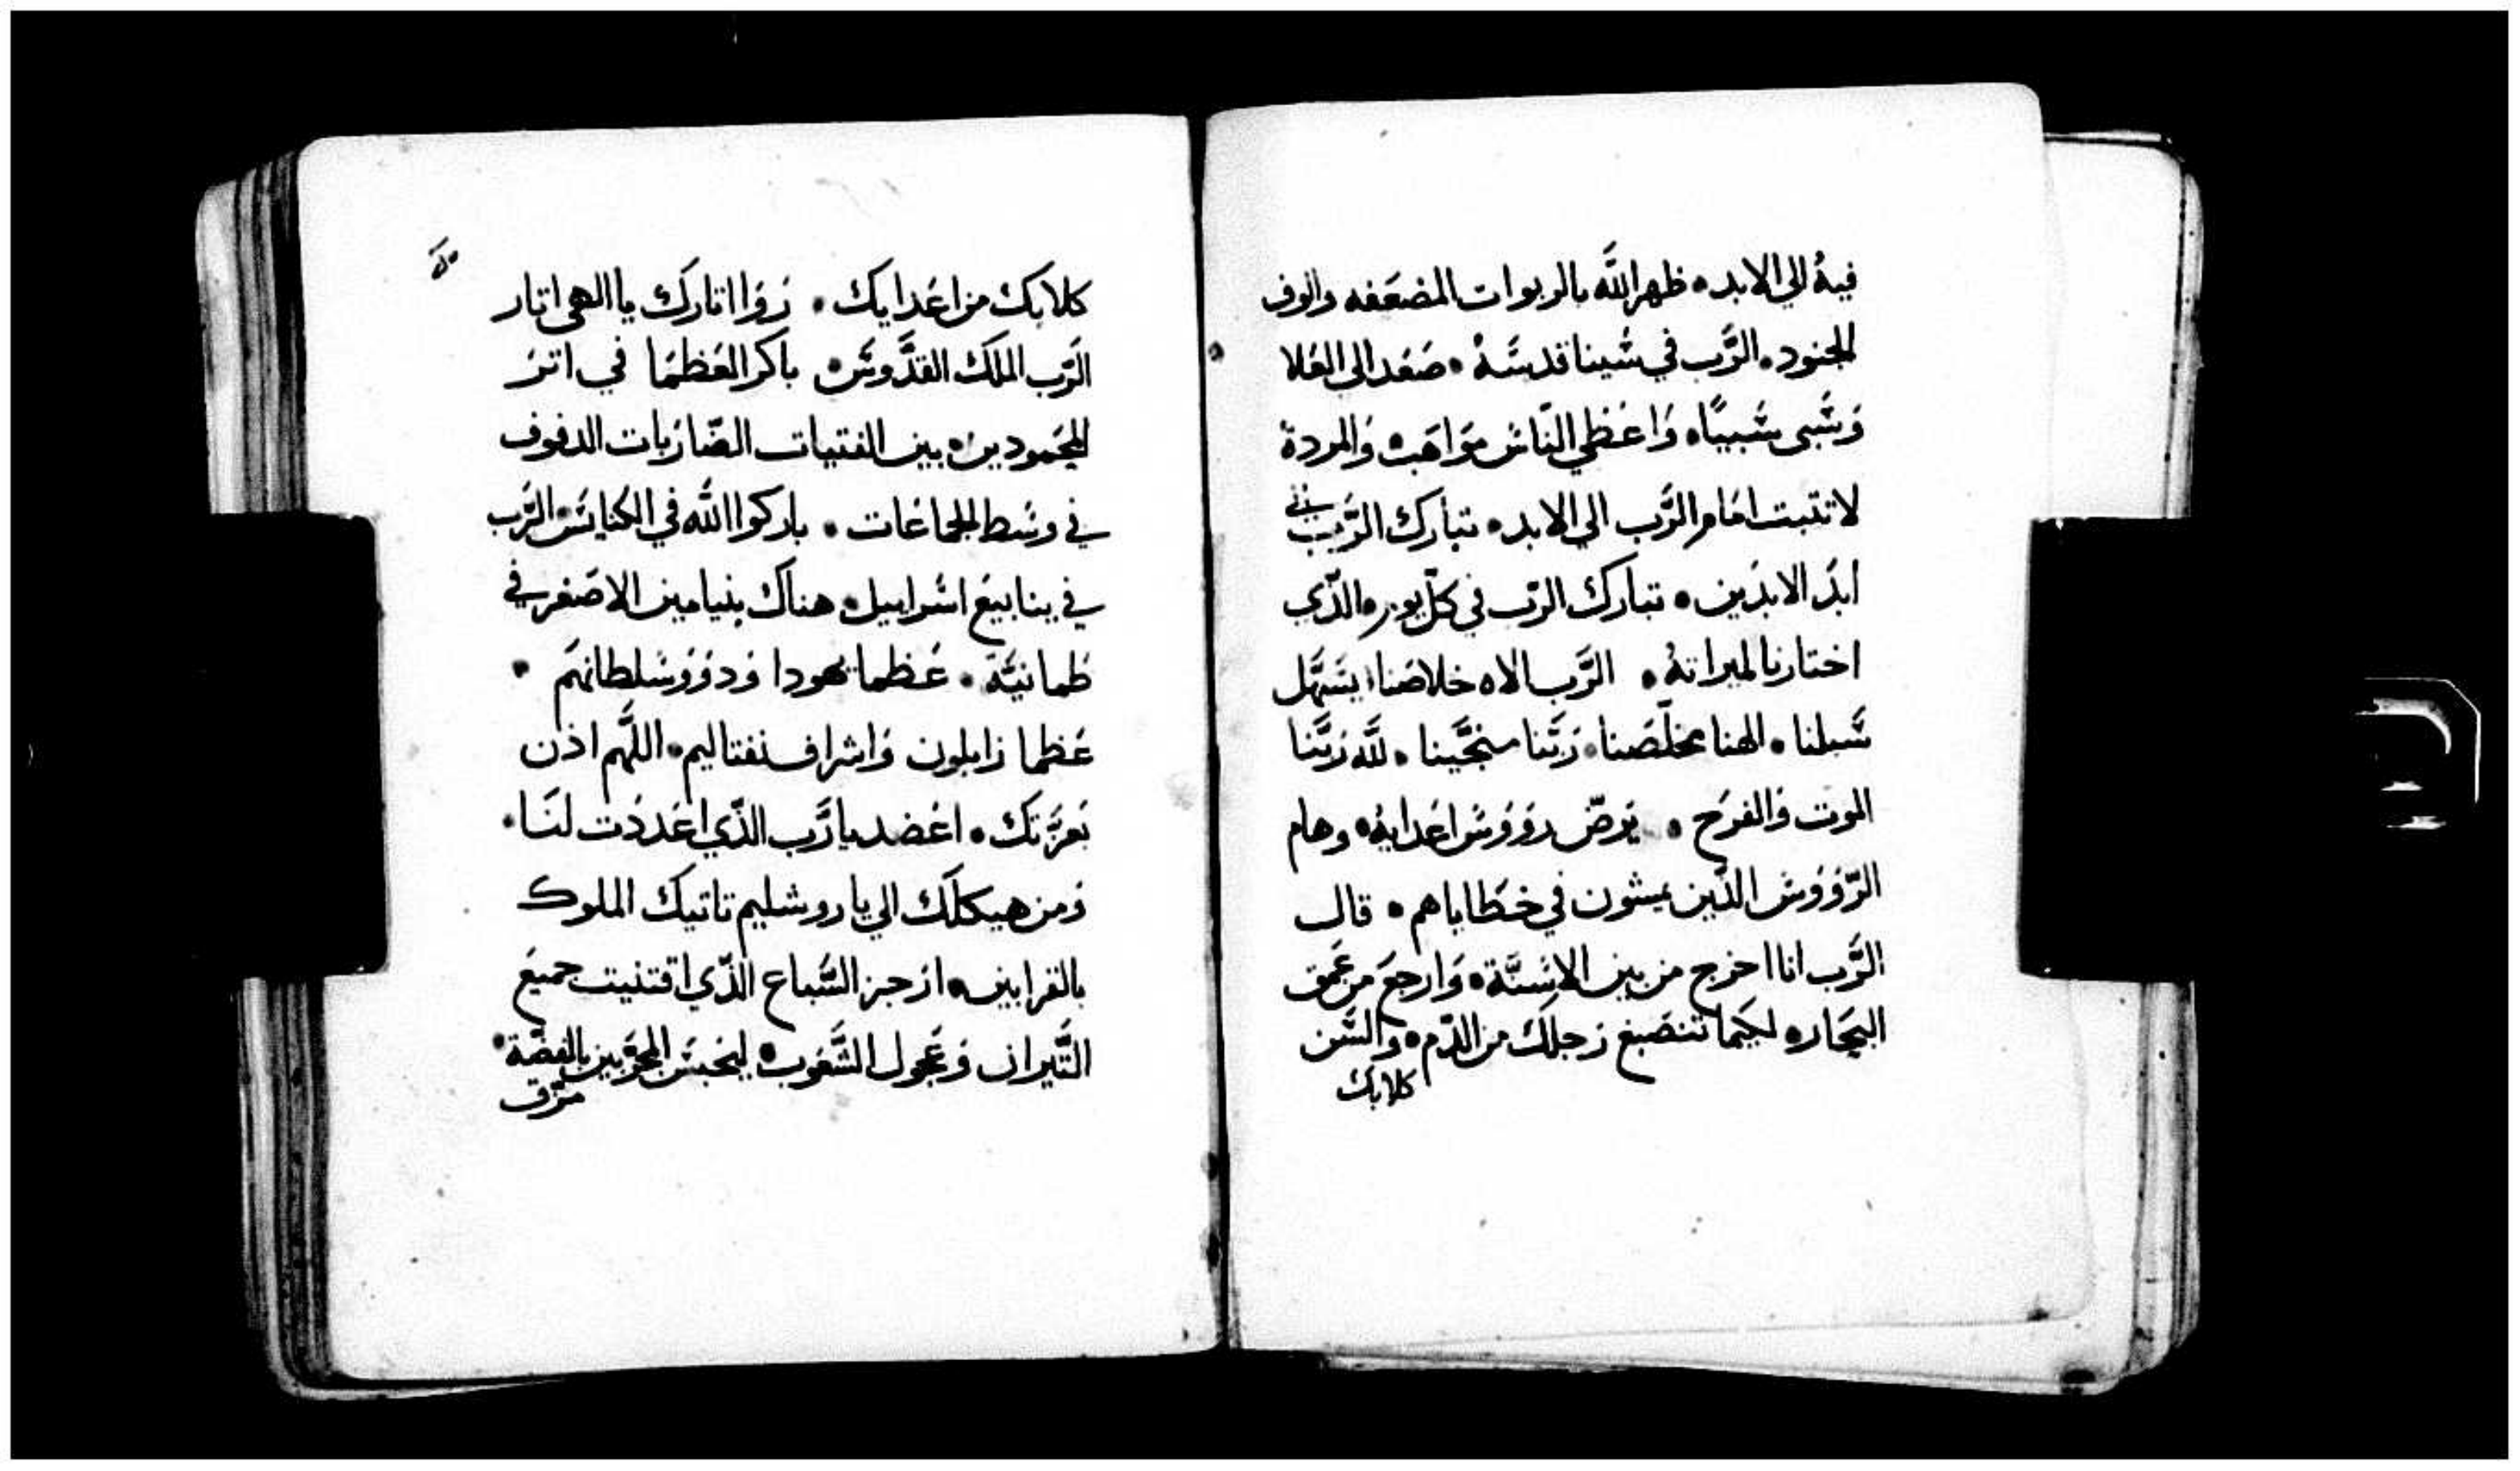 فيهُ الي الابد ٥ ظهر اللَّه بالربوات المضعَفه والوف
الجنود ٥ الرَّب في سُينا قدسَهُ ٥ صَعَد الى العَلا
وَسُبى سُبيًا ٥ وَاعَطي النّاسُ مَوَاهَب ٥ وَالمردة
لا تتبت امَام الرَّب الي الابد ٥ تبارَك الرَّب
ابدَ الابدَين ٥ تبارَك الرّب في كلّ يوم ٥ الذّي
اختارنا لميراتهُ ٥ الرَّب الاه خلاصَنا يسَهَّل
سُبلنا ٥ الهنا مخلّصَنا ٥ رَبّنا منجَّينا ٥ للَّه رَبَّنا
الموت وَالفرَح ٥ يَرضّ روَوَسُ اعَدايهُ ٥ وهام
الرّوَوَسُ الذّين يمشون في خطَاياهم ٥ قال
الرَّب انا اخرج من بين الاسِنَّة ٥ وَارجعَ من عَمق
البحَار ٥ لكيما تنصَبغ رَجلكَ من الدّم ٥ والسَن
كلابك
كلابكَ من اعَدايك ٥ رَوَا اتارَك يا الهى اتار
الرَّب الملَك القدَّوسُ ٥ باكر العَظمَا في اترَ
المجَمودين ٥ بين الفتيات الضّارَبات الدفوف
في وسُط الجماعَات ٥ باركوا اللَّه في الكنايسُ ٥ الرَّب
في ينابيعَ اسُراييل ٥ هناكَ بنيامين الاصَغر في
طَمانيَّة ٥ عَظما يهودا وَدوَوَسُلطانهَم ٥
عَظما زابلون وَاشراف نفتاليم ٥ اللَّهم اذن
بَعزَّتك ٥ اعَضد يا رَّب الذّي اعَددَت لنَا ٥
وَمن هيكلَك الي يا روشليم تاتيك الملوك
بالقرابين ٥ ازجز السُّباع الذّي اقتنيت جميعَ
التَّيران وَعَجول الشَّعَوب ٥ ليحَبسَ المجَرَّبين بالفضّة ٥
مزّق